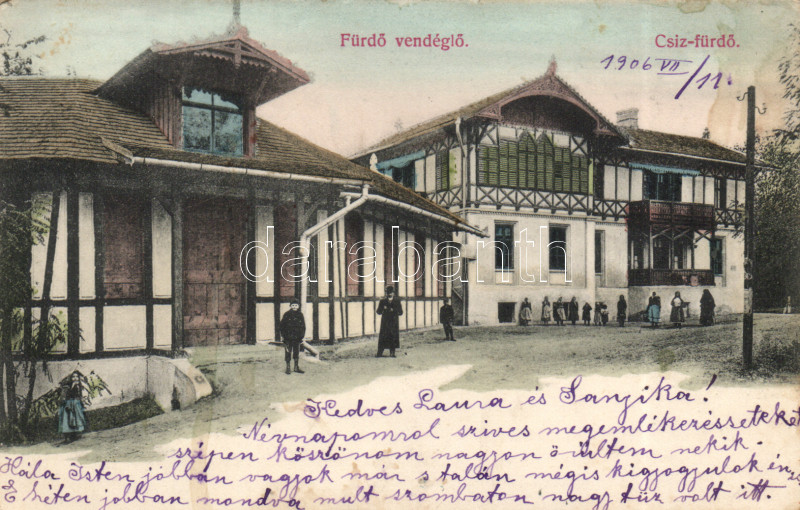 Fürdő vendéglő.
Csiz-fürdő.
1906 VII/11.
darabanth
Kedves Laura és Sanyika!
Névnapomrol szives megemlékezésseteket
szépen köszönöm nagyon örültem nekik.
Hála Isten jobban vagyok már s talán mégis kigyogyulok
E héten jobban mondva mult szombaton nagy tüz volt itt.